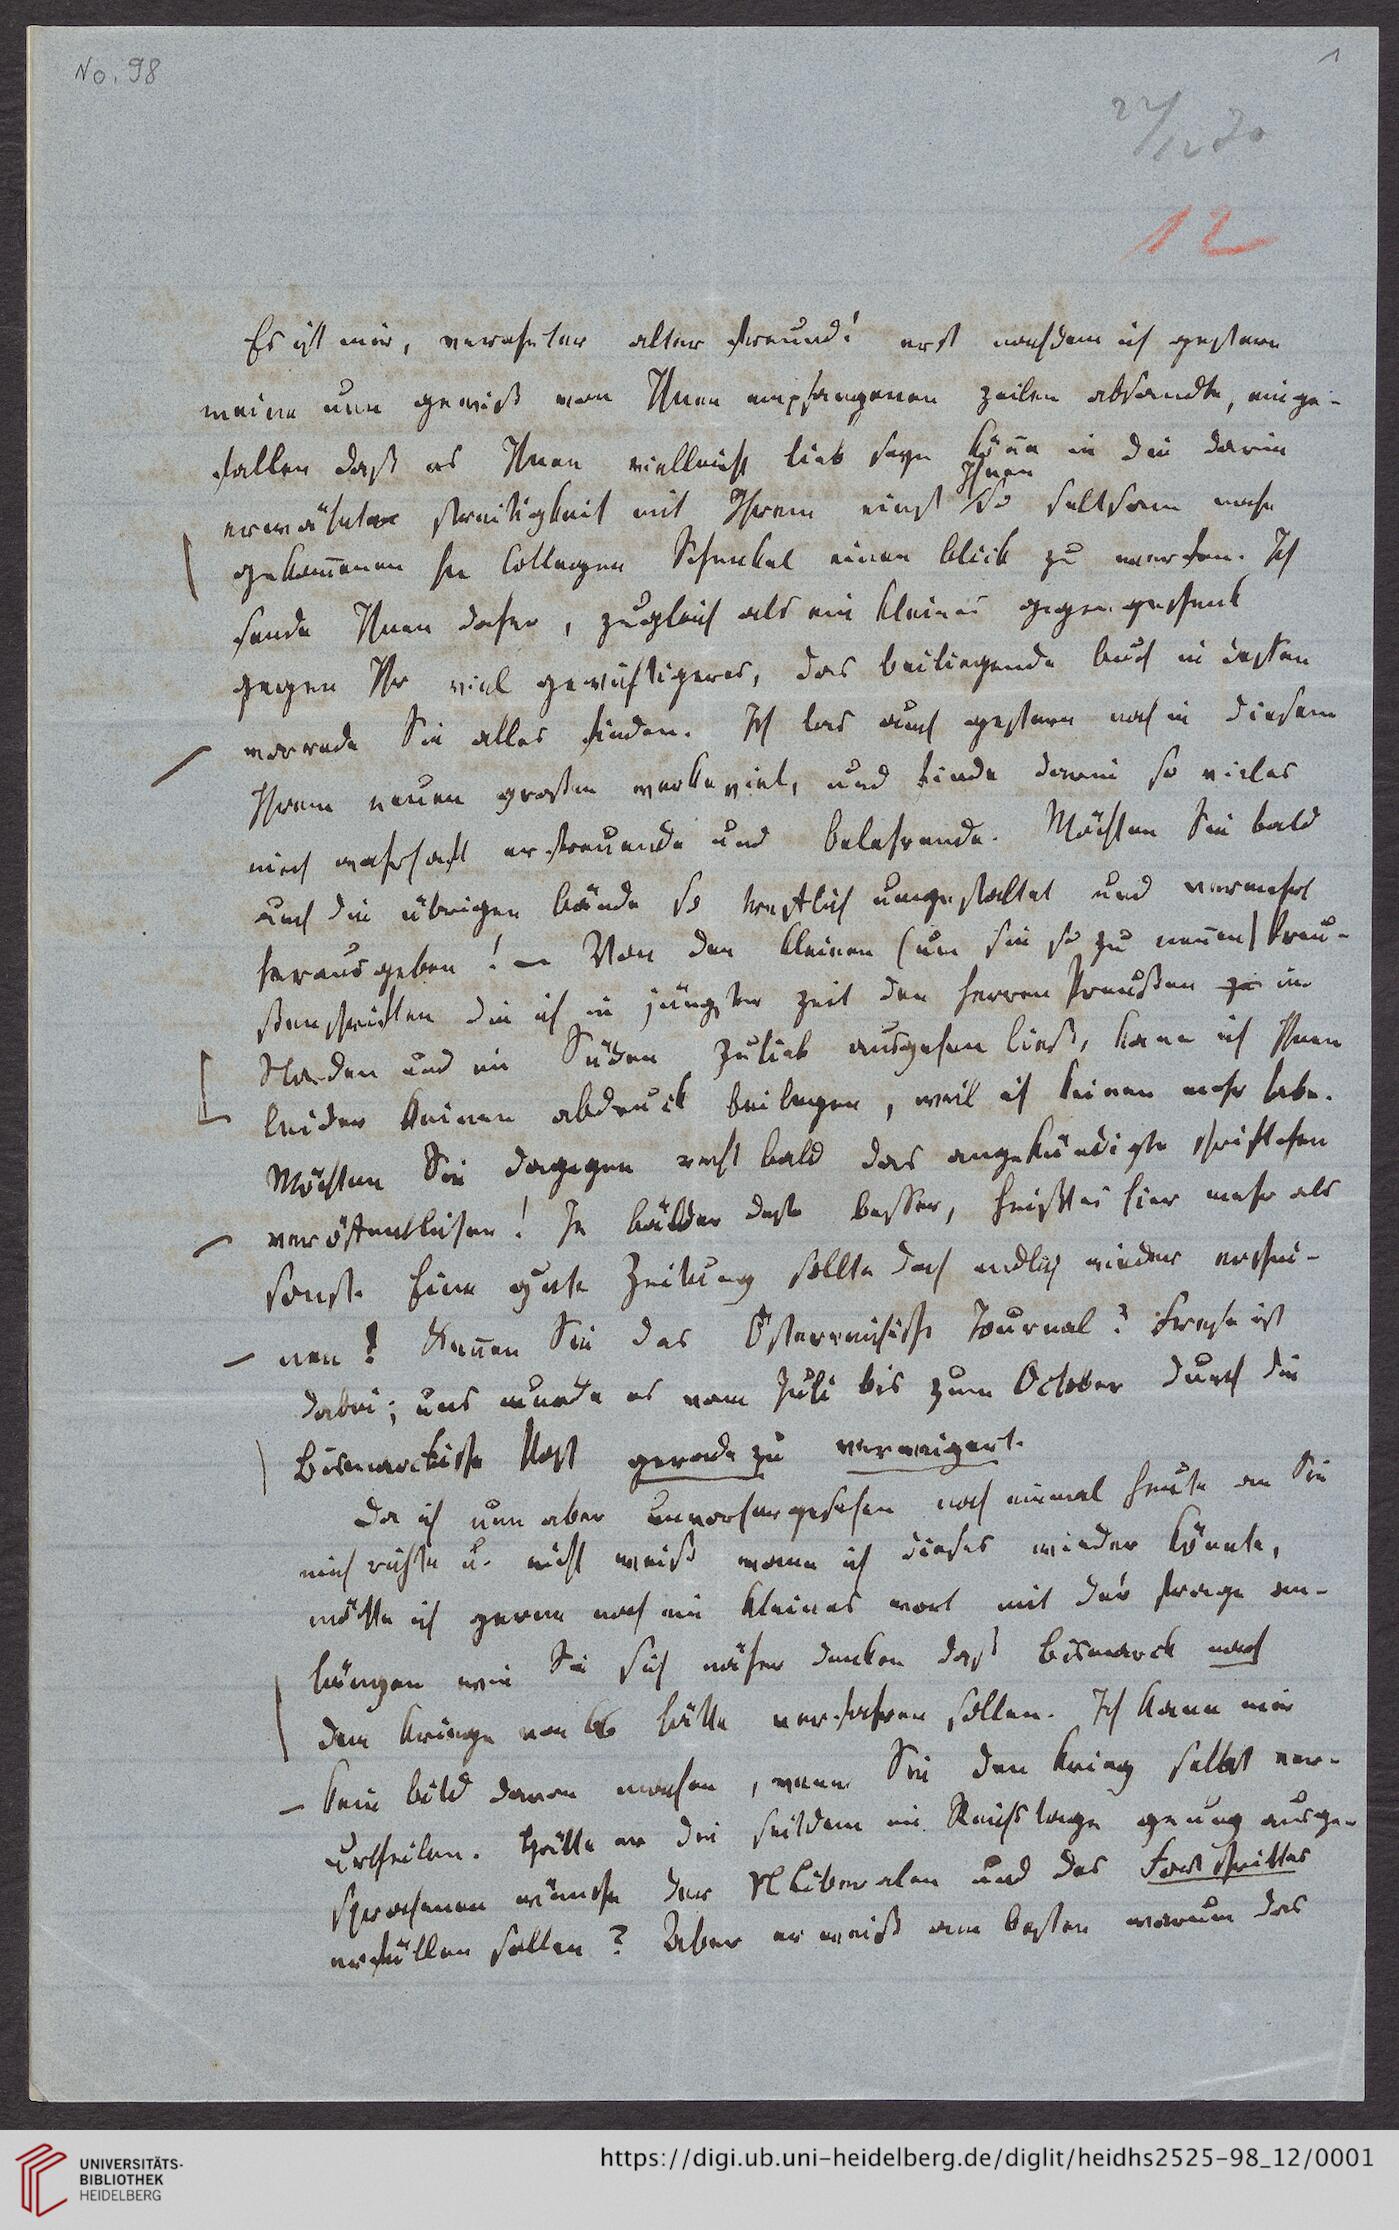 No. 98
1
27/12 70
12
Es ist mir, verehrter alter freund! erst nachdem ich gestern
meine nun gewiß von Ihnen empfangenen zeilen absandte, einge-
fallen daß es Ihnen vielleicht lieb seyn könne in die darin
erwähnte streitigkeit mit Ihrem einst Ihnen so seltsam nahe
gekommenen Collegen Schenkel einen blick zu werfen. Ich
sende Ihnen daher, zugleich als ein kleines gegengeschenk
gegen Ihr viel gewichtigeres, das beiliegende buch in dessen
vorrede Sie alles finden. Ich las auch gestern noch in diesem
Ihrem neuen großen werke viel, und finde darin so vieles
mich wahrhaft erfreuende und belehrende. Möchten Sie bald
auch die übrigen bände so trefflich umgestaltet und vermehrt
herausgeben! — Von den kleinen (um sie so zu nennen) Preu-
ßenschriften die ich in jüngster zeit den herren Preußen im
Norden und im Süden zulieb ausgehen ließ, kann ich Ihnen
leider keinen abdruck beilegen, weil ich keinen mehr habe.
Möchten Sie dagegen recht bald das angekündigte schriftchen
veröffentlichen! Je bälder desto besser, heißt es hier mehr als
sonst. Eine gute Zeitung sollte doch endlich wieder erschei-
nen! Kennen Sie das Österreichische Journal? Frese ist
dabei; uns wurde es vom Juli bis zum October durch die
Bismarckische Post geradezu verweigert.
Da ich nun aber unvorhergesehen noch einmal heute an Sie
mich richte u. nicht weiß wann ich dieses wieder könnte,
möchte ich gerne noch ein kleines wort mit der frage an-
hängen wie Sie sich näher denken daß Bismarck nach
dem kriege von 66 hätte verfahren sollen. Ich kann mir
kein bild davon machen, wenn Sie den krieg selbst ver-
urtheilen. Hätte er die seitdem im Reichstage genug ausge-
sprochenen wünsche der Nliberalen und des Fortschrittes
erfüllen sollen? Aber er weiß am besten warum das
UNIVERSITÄTS-
BIBLIOTHEK
HEIDELBERG
https://digi.ub.uni-heidelberg.de/diglit/heidhs2525-98_12/0001